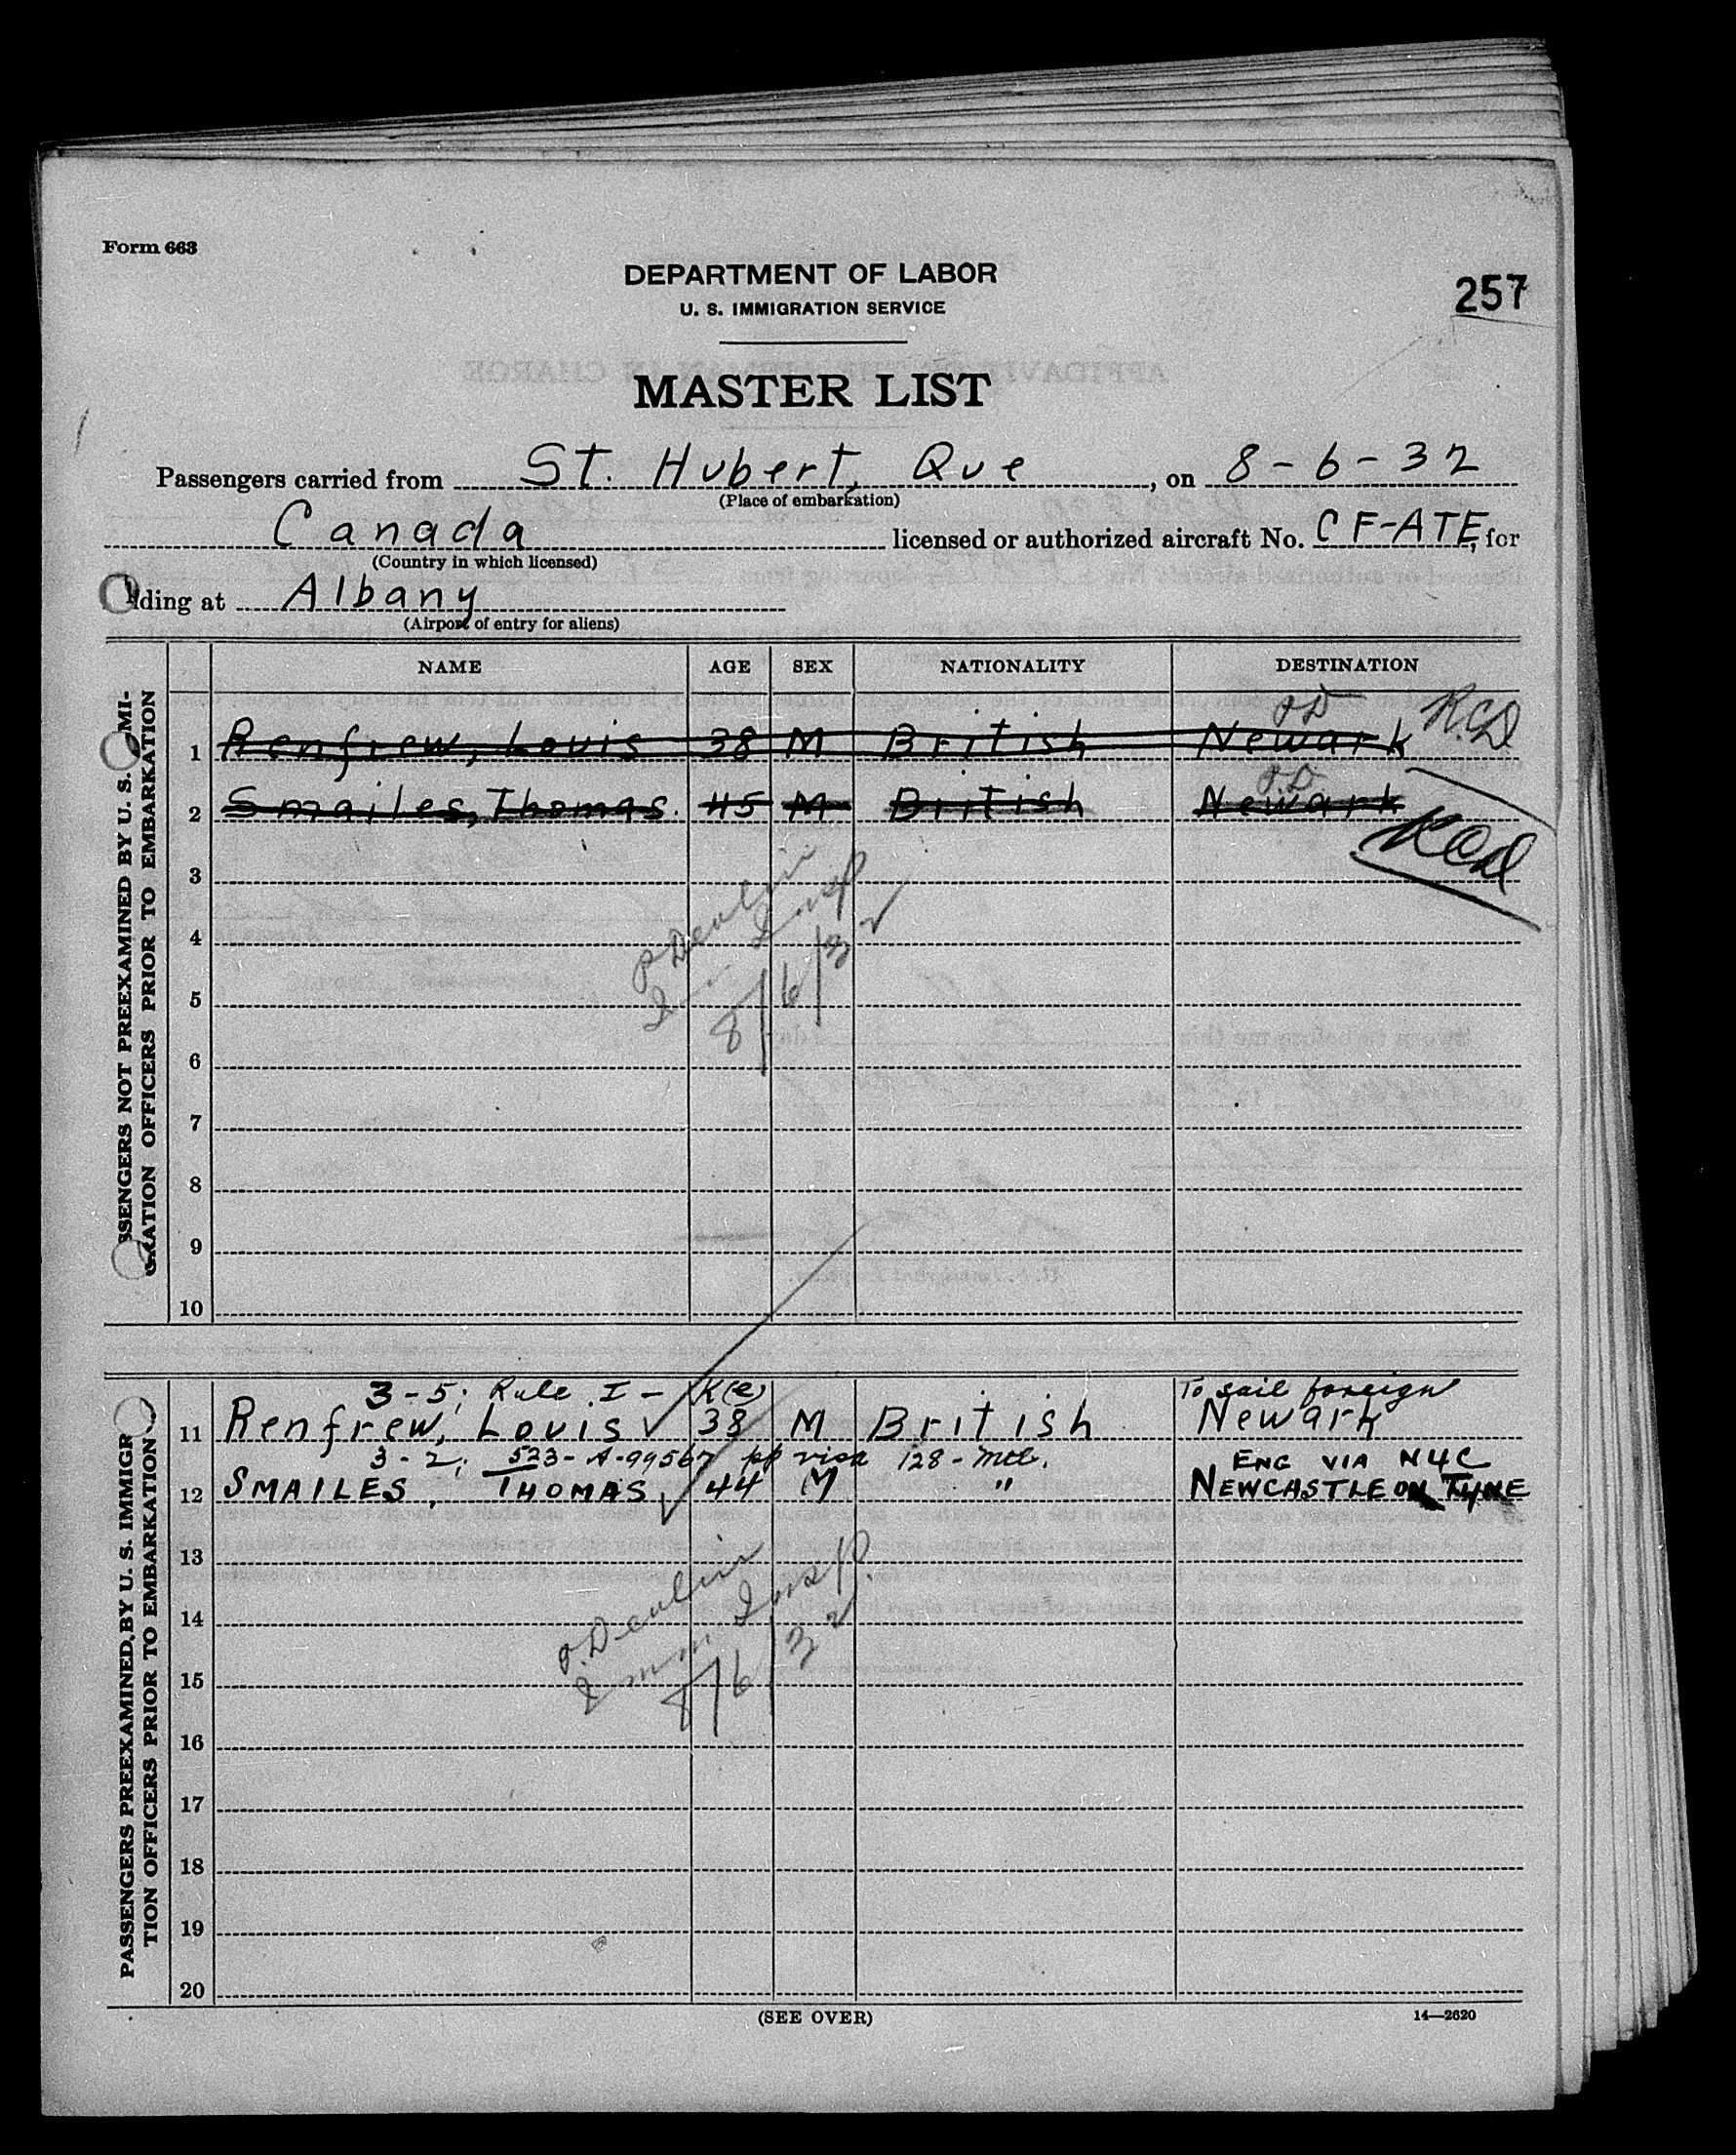 Form 663
DEPARTMENT OF LABOR
U. S. IMMIGRATION SERVICE
257
MASTER LIST
Passengers carried from St. Hubert, Que, on 8-6-32
(Place of embarkation)
Canada licensed or authorized aircraft No. CF-ATE, for
(Country in which licensed)
ding at Albany
(Airport of entry for aliens)
NAME AGE SEX NATIONALITY DESTINATION
SSENGERS NOT PREEXAMINED BY U. S. MI-
RATION OFFICERS PRIOR TO EMBARKATION
RCD
1 Renfrew, Louis 38 M British Newark
2 Smailes, Thomas. 45 M British Newark
RCD
3
4
5
P Devlin
Insp
8/6/32
6
7
8
9
10
PASSENGERS PREEXAMINED BY U. S. IMMIGR
TION OFFICERS PRIOR TO EMBARKATION
3-5; Rule I - K(e) To sail foreign
11 Renfrew, Louis ✓ 38 M British Newark
3-2; 523-A-99567 pp visa 128-Mtl. ENG VIA NYC
12 SMAILES, THOMAS ✓ 44 M " NEWCASTLE ON TYNE
13
14
P. Devlin
Imm Insp.
8/6/32
15
16
17
18
19
20
(SEE OVER)
14—2620